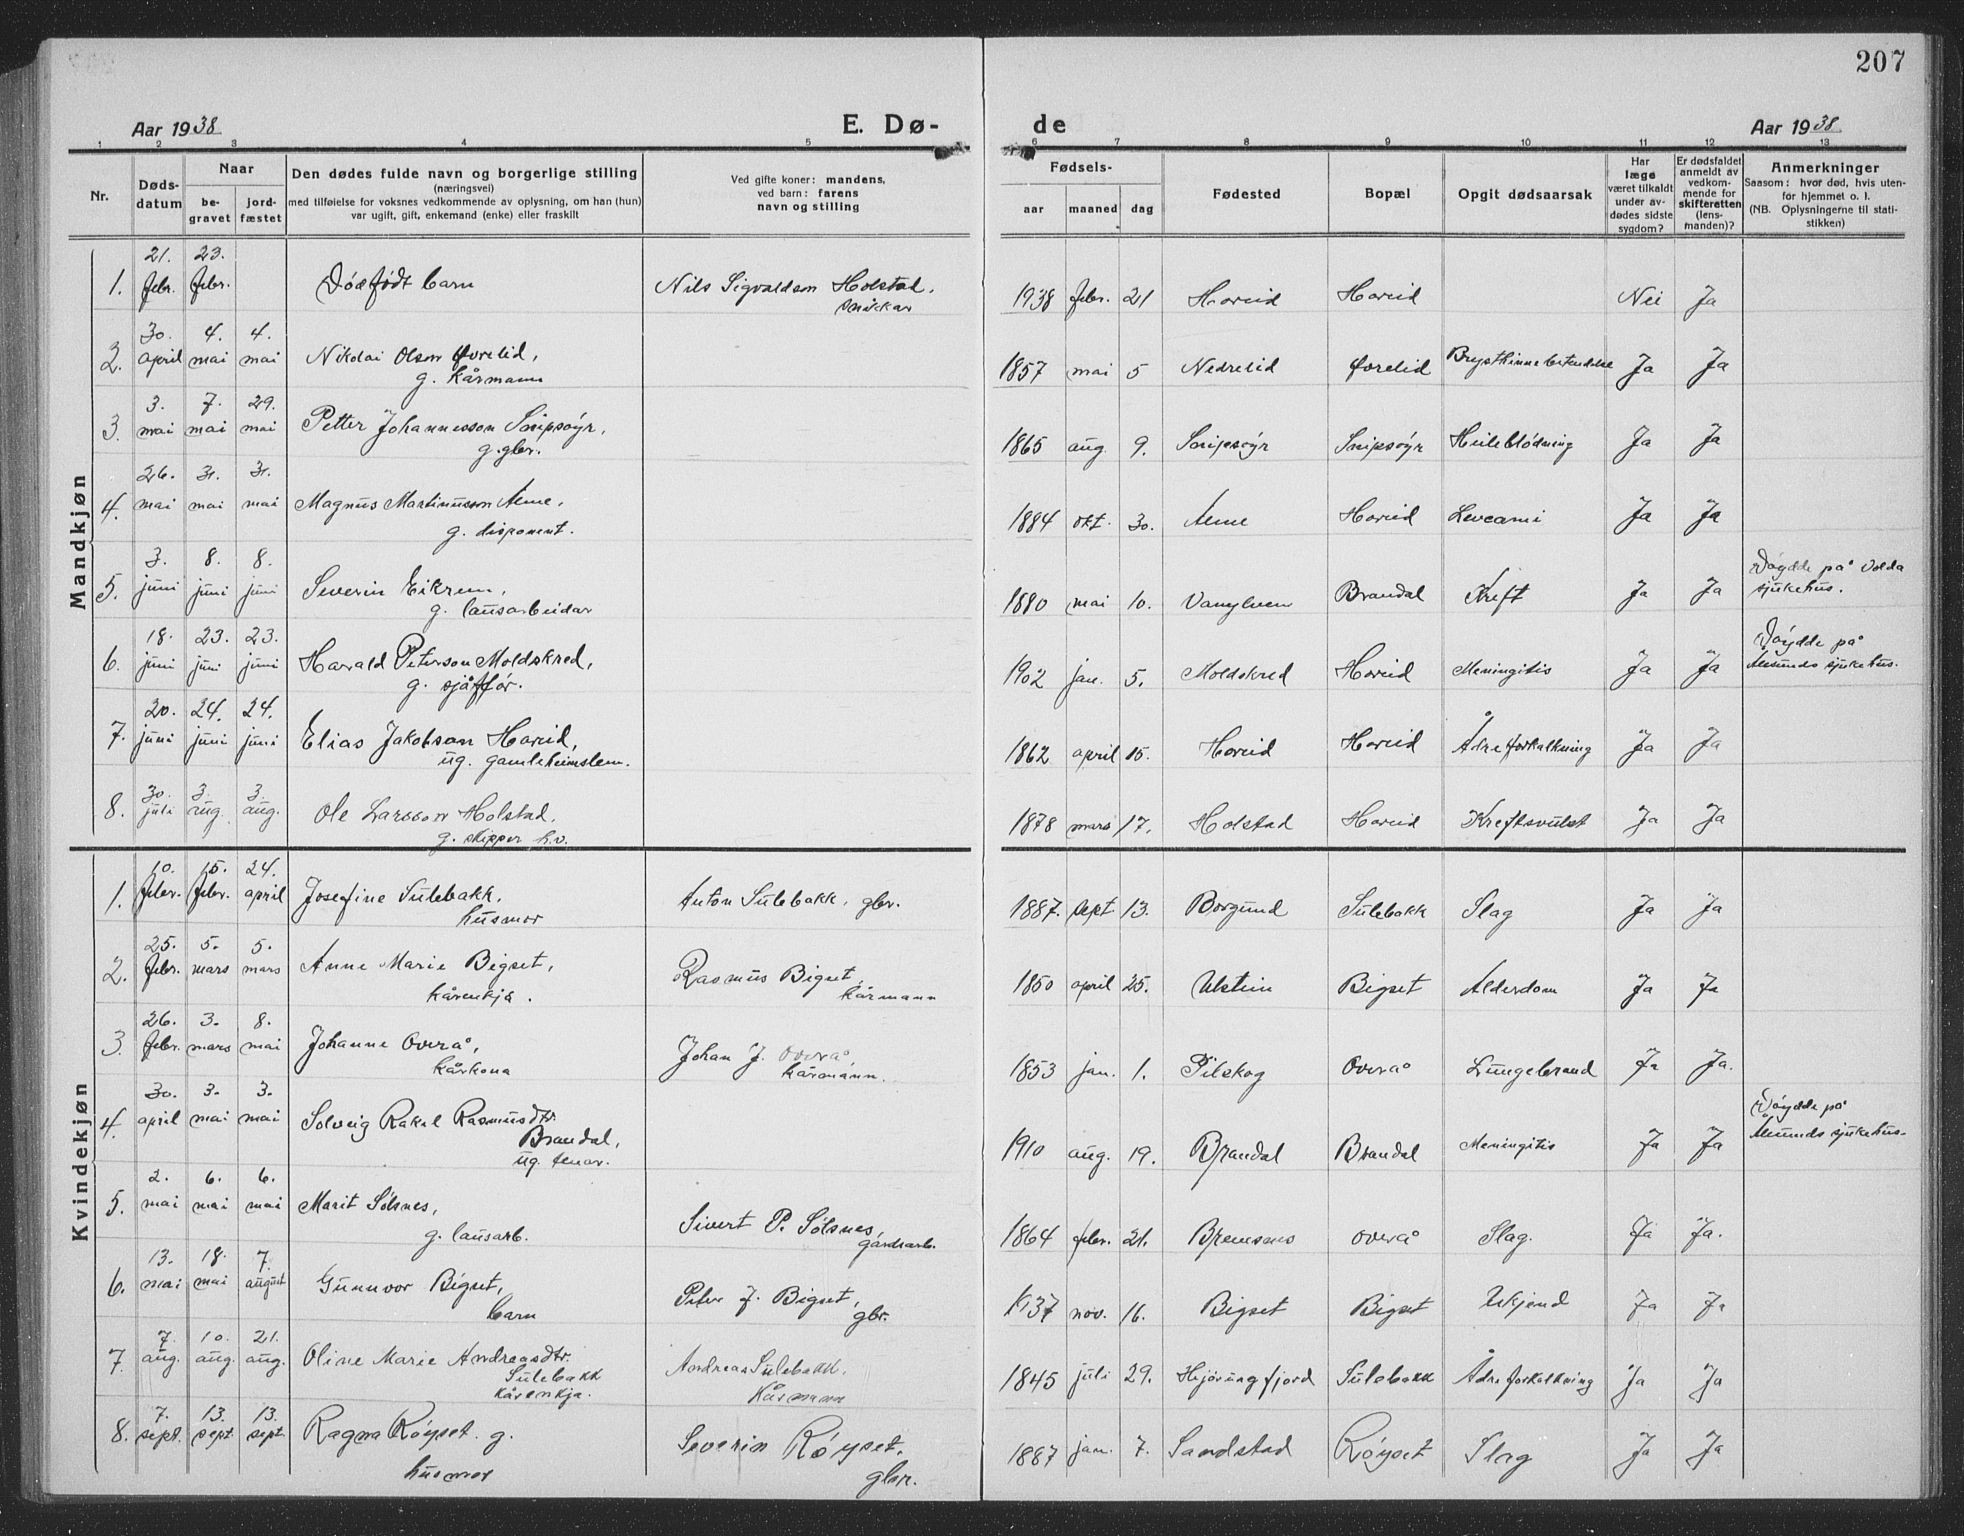 207
Aar 1938 E. Dø- de Aar 1938
1 2 3 4 5 6 7 8 9 10 11 12 13
Nr. Døds-datum Naar be-gravet jord-fæstet Den dødes fulde navn og borgerlige stilling (næringsvei) med tilføielse for voksnes vedkommende av oplysning, om han (hun) var ugift, gift, enkemand (enke) eller fraskilt Ved gifte koner: mandens, ved barn: farens navn og stilling Fødsels- aar maaned dag Fødested Bopæl Opgit dødsaarsak Har læge været tilkaldt under av-dødes sidste sygdom? Er dødsfaldet anmeldt av vedkom-mende for skifteretten (lens-manden)? Anmerkninger Saasom: hvor død, hvis uten-for hjemmet o. l. (NB. Oplysningerne til stati-stikken)
Mandkjøn
1. 21. febr. 23. febr. Dødfødt barn Nils Sigvaldson Holstad, snikkar 1938 febr. 21 Hareid Hareid Nei Ja
2. 30. april 4. mai 4. mai Nikolai Olson Øvrelid, g. kårmann 1857 mai 5 Nedrelid Øvrelid Brysthinnebetendelse Ja Ja
3. 3. mai 7. mai 29. mai Petter Johannesson Snipsøyr, g. gbr. 1865 aug. 9. Snipsøyr Snipsøyr Heileblødning Ja Ja
4. 26. mai 31. mai 31. mai Magnus Martinusson Alme, g. disponent. 1884 okt. 30. Alme Hareid Levcami Ja Ja
5. 3. juni 8. juni 8. juni Severin Eikrem, g. lausarbeidar 1880 mai 10. Vanylven Brandal Kreft Ja Ja Døydde på Volda sjukehus.
6. 18. juni 23. juni 23. juni Harald Peterson Moldskred, g. sjåffør. 1902 jan. 5. Moldskred Hareid Meningitis Ja Ja Døydde på Ålesunds sjukehus.
7. 20. juni 24. juni 24. juni Elias Jakobson Hareid, ug. gamleheimslem. 1862 april 15. Hareid Hareid Ådreforkalkning Ja Ja
8. 30. juli 3. aug. 3. aug. Ole Larsson Holstad, g. skipper h.v. 1878 mars 17. Holstad Hareid Kreftsvulst Ja Ja
Kvindekjøn
1. 10. febr. 15. febr. 24. april Josefine Sulebakk, husmor Anton Sulebakk, gbr. 1887. sept. 13. Borgund Sulebakk Slag Ja Ja
2. 25. febr. 5. mars 5. mars Anne Marie Bigset, kårenkja. Rasmus Bigset, kårmann 1850 april 25. Ulstein Bigset Alderdom Ja Ja
3. 26. febr. 3. mars 8. mai Johanne Overå, kårkona Johan J. Overå, kårmann. 1853 jan. 1. Pilskog Overå Lungebrand Ja Ja.
4. 30. april 3. mai 3. mai Solveig Rakel Rasmusdtr. Brandal, ug. tenar. 1910 aug. 19. Brandal Brandal Meningitis Ja Ja Døydde på Ålesunds sjukehus.
5. 2. mai 6. mai 6. mai Marit Solsnes, g. lausarb. Sivert P. Solsnes, gardsarb. 1864 febr. 21. Bremsnes Overå Slag. Ja Ja.
6. 13. mai 18. mai 7. august Gunnvor Bigset, barn Peter J. Bigset, gbr. 1937 nov. 16. Bigset Bigset Ukjend Ja Ja
7. 7. aug. 10. aug. 21. aug. Oline Marie Andreasdtr. Sulebakk kårenkja. Andreas Sulebakk, kårmann 1845 juli 29. Hjørungfjord Sulebakk Ådreforkalkning Ja Ja
8. 7. sept. 13. sept. 13. sept. Ragna Røyset. g. husmor Severin Røyset, gbr. 1887 jan. 7. Sandstad Røyset Slag Ja Ja